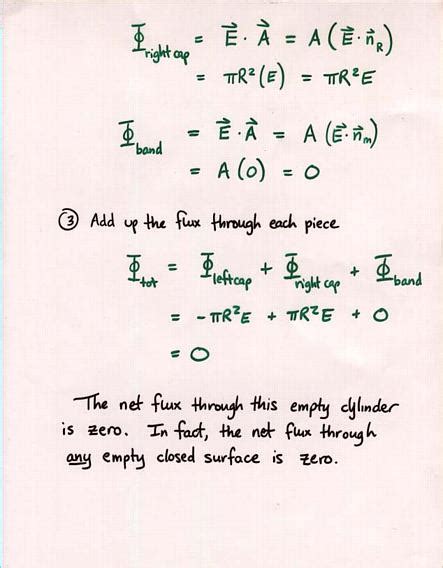 Φ⃗ right cap = E⃗ · A⃗ = A (E⃗ · n⃗_R)
= πR²(E) = πR²E
Φ_band = E⃗ · A⃗ = A (E⃗ · n⃗_m)
= A (0) = 0
③ Add up the flux through each piece
Φ_tot = Φ_left cap + Φ_right cap + Φ_band
= -πR²E + πR²E + 0
= 0
The net flux through this empty cylinder
is zero. In fact, the net flux through
any empty closed surface is zero.